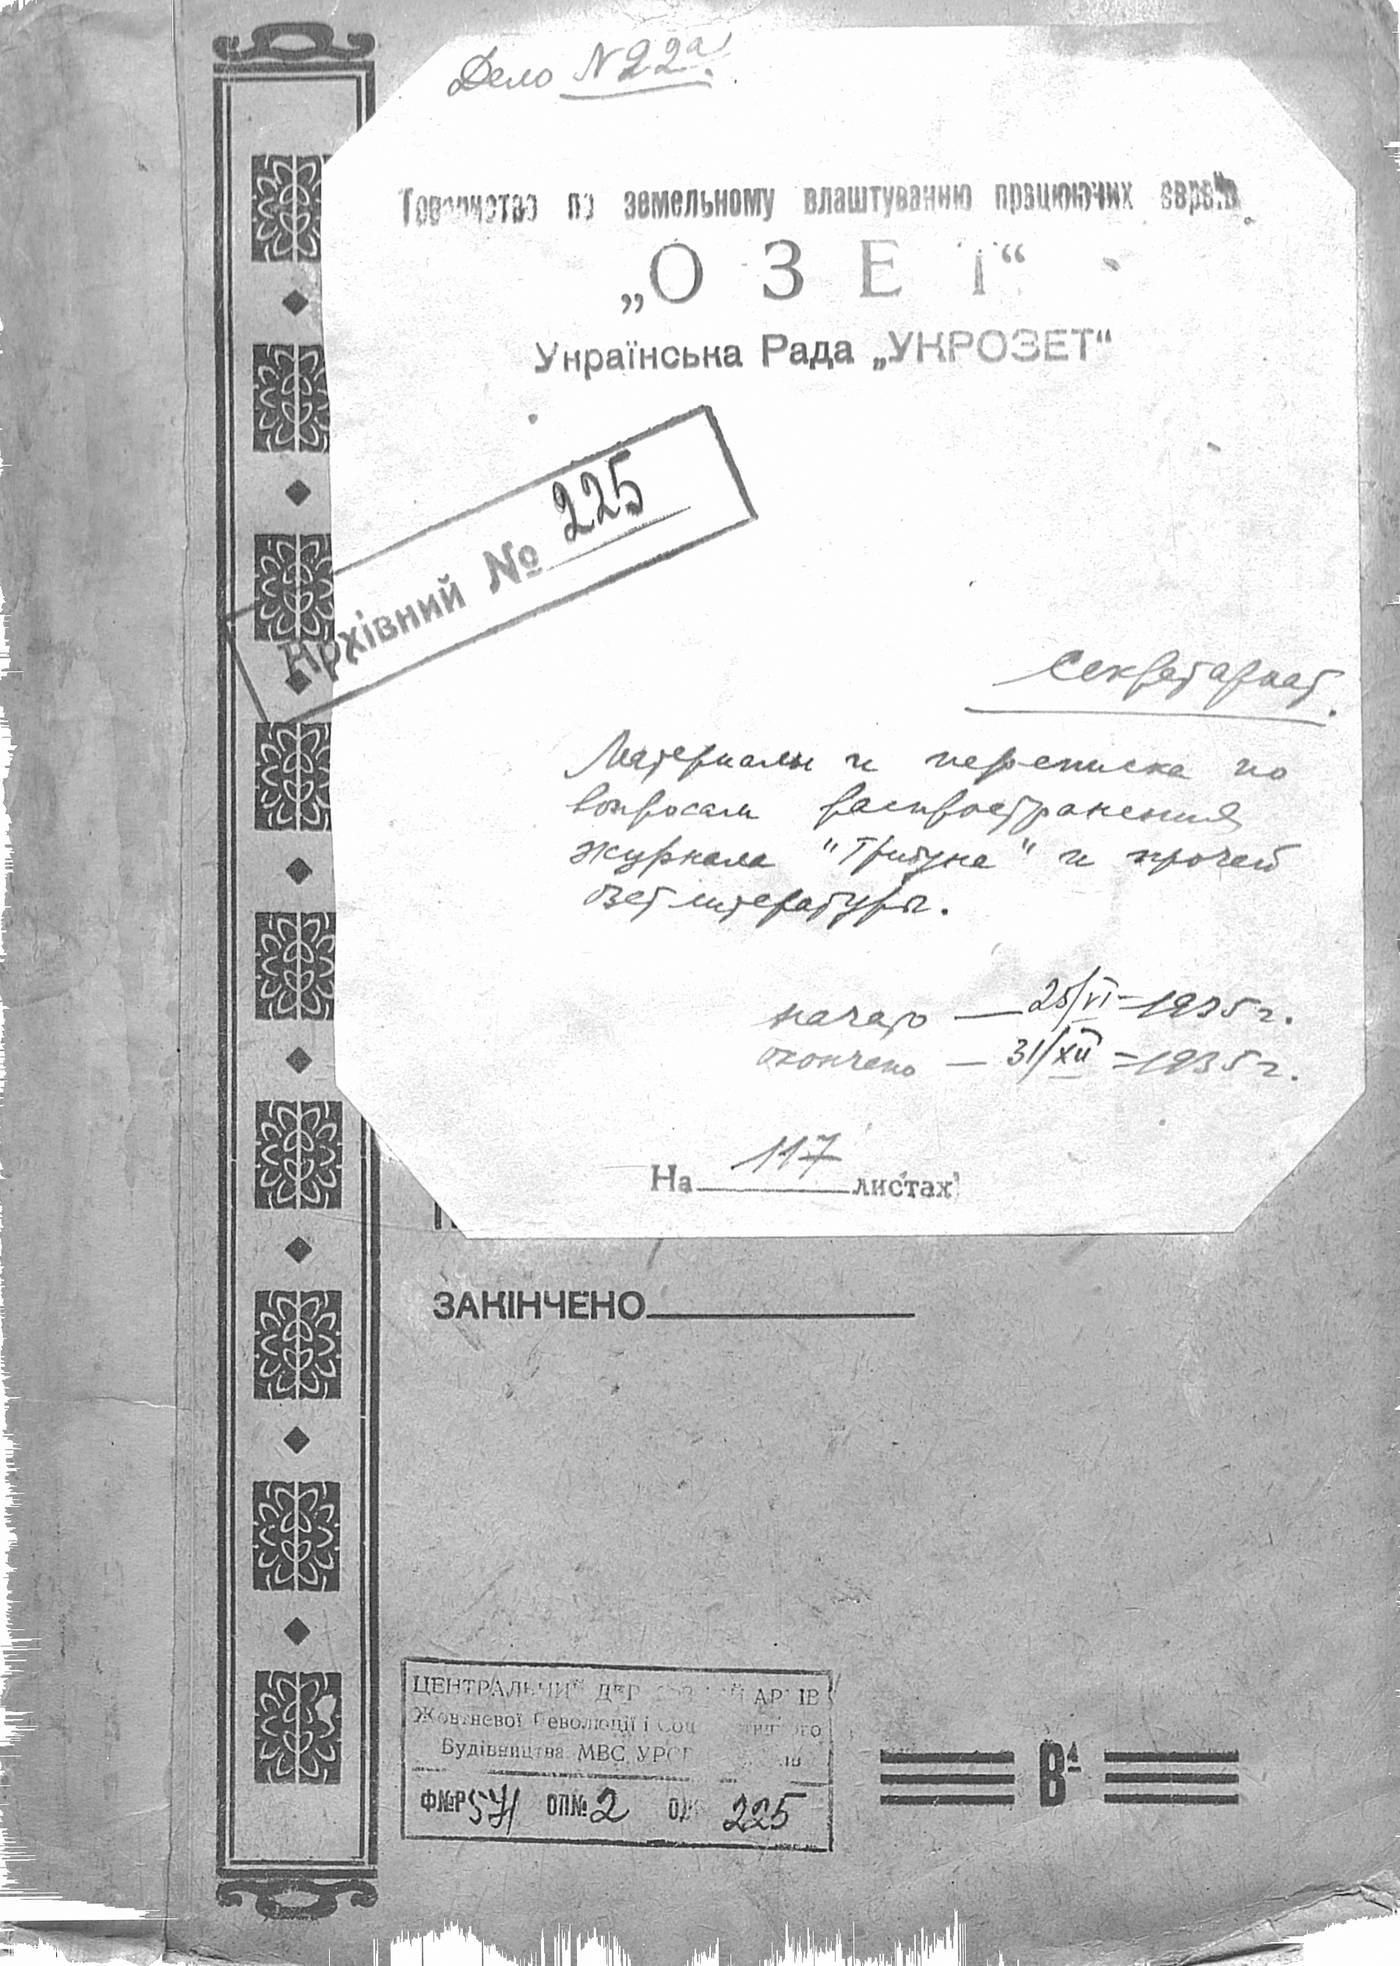 Дело N 22а
Товариство по земельному влаштуванню працюючих євреїв
„ОЗЕТ“
Українська Рада „УКРОЗЕТ“
Архівний № 225
Секретариат.
Материалы и переписка по
вопросам распространения
журнала "Трибуна" и прочей
Озет литературы.
начато — 25/VI – 1935 г.
окончено — 31/XII – 1935 г.
На 117 листах
ЗАКІНЧЕНО
ЦЕНТРАЛЬНИЙ ДЕРЖАВНИЙ АРХІВ
Жовтневої Революції і Соціалістичного
Будівництва МВС УРСР
Ф№Р 571 ОП№ 2 ОД 225
В4